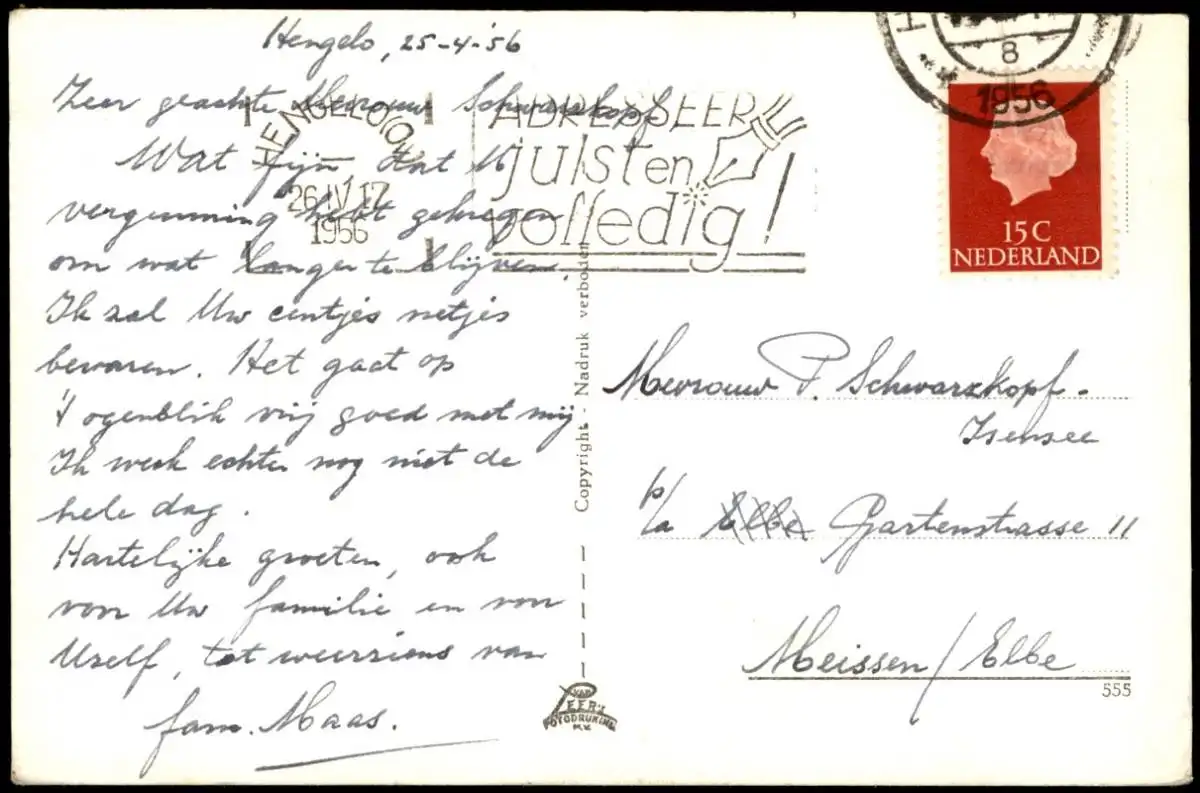 Hengelo, 25-4-'56
Zeer geachte Mevrouw Schwarzkopf,
Wat fijn dat U
vergunning hebt gekregen
om wat langer te blijven.
Ik zal Uw centjes netjes
bewaren. Het gaat op
't ogenblik vrij goed met mij
Ik werk echter nog niet de
hele dag.
Hartelijke groeten, ook
voor Uw familie en von
Uzelf, tot weerziens van
fam. Maas.
HENGELO(O)
26.IV.17
1956
ADRESSEER
juist en
volledig!
8
1956
15C
NEDERLAND
Copyright - Nadruk verboden
Mevrouw P. Schwarzkopf-
Isensee
p/a Elbe Gartenstrasse 11
Meissen/Elbe
555
VAN
LEER'S
FOTODRUKIND.
N.V.